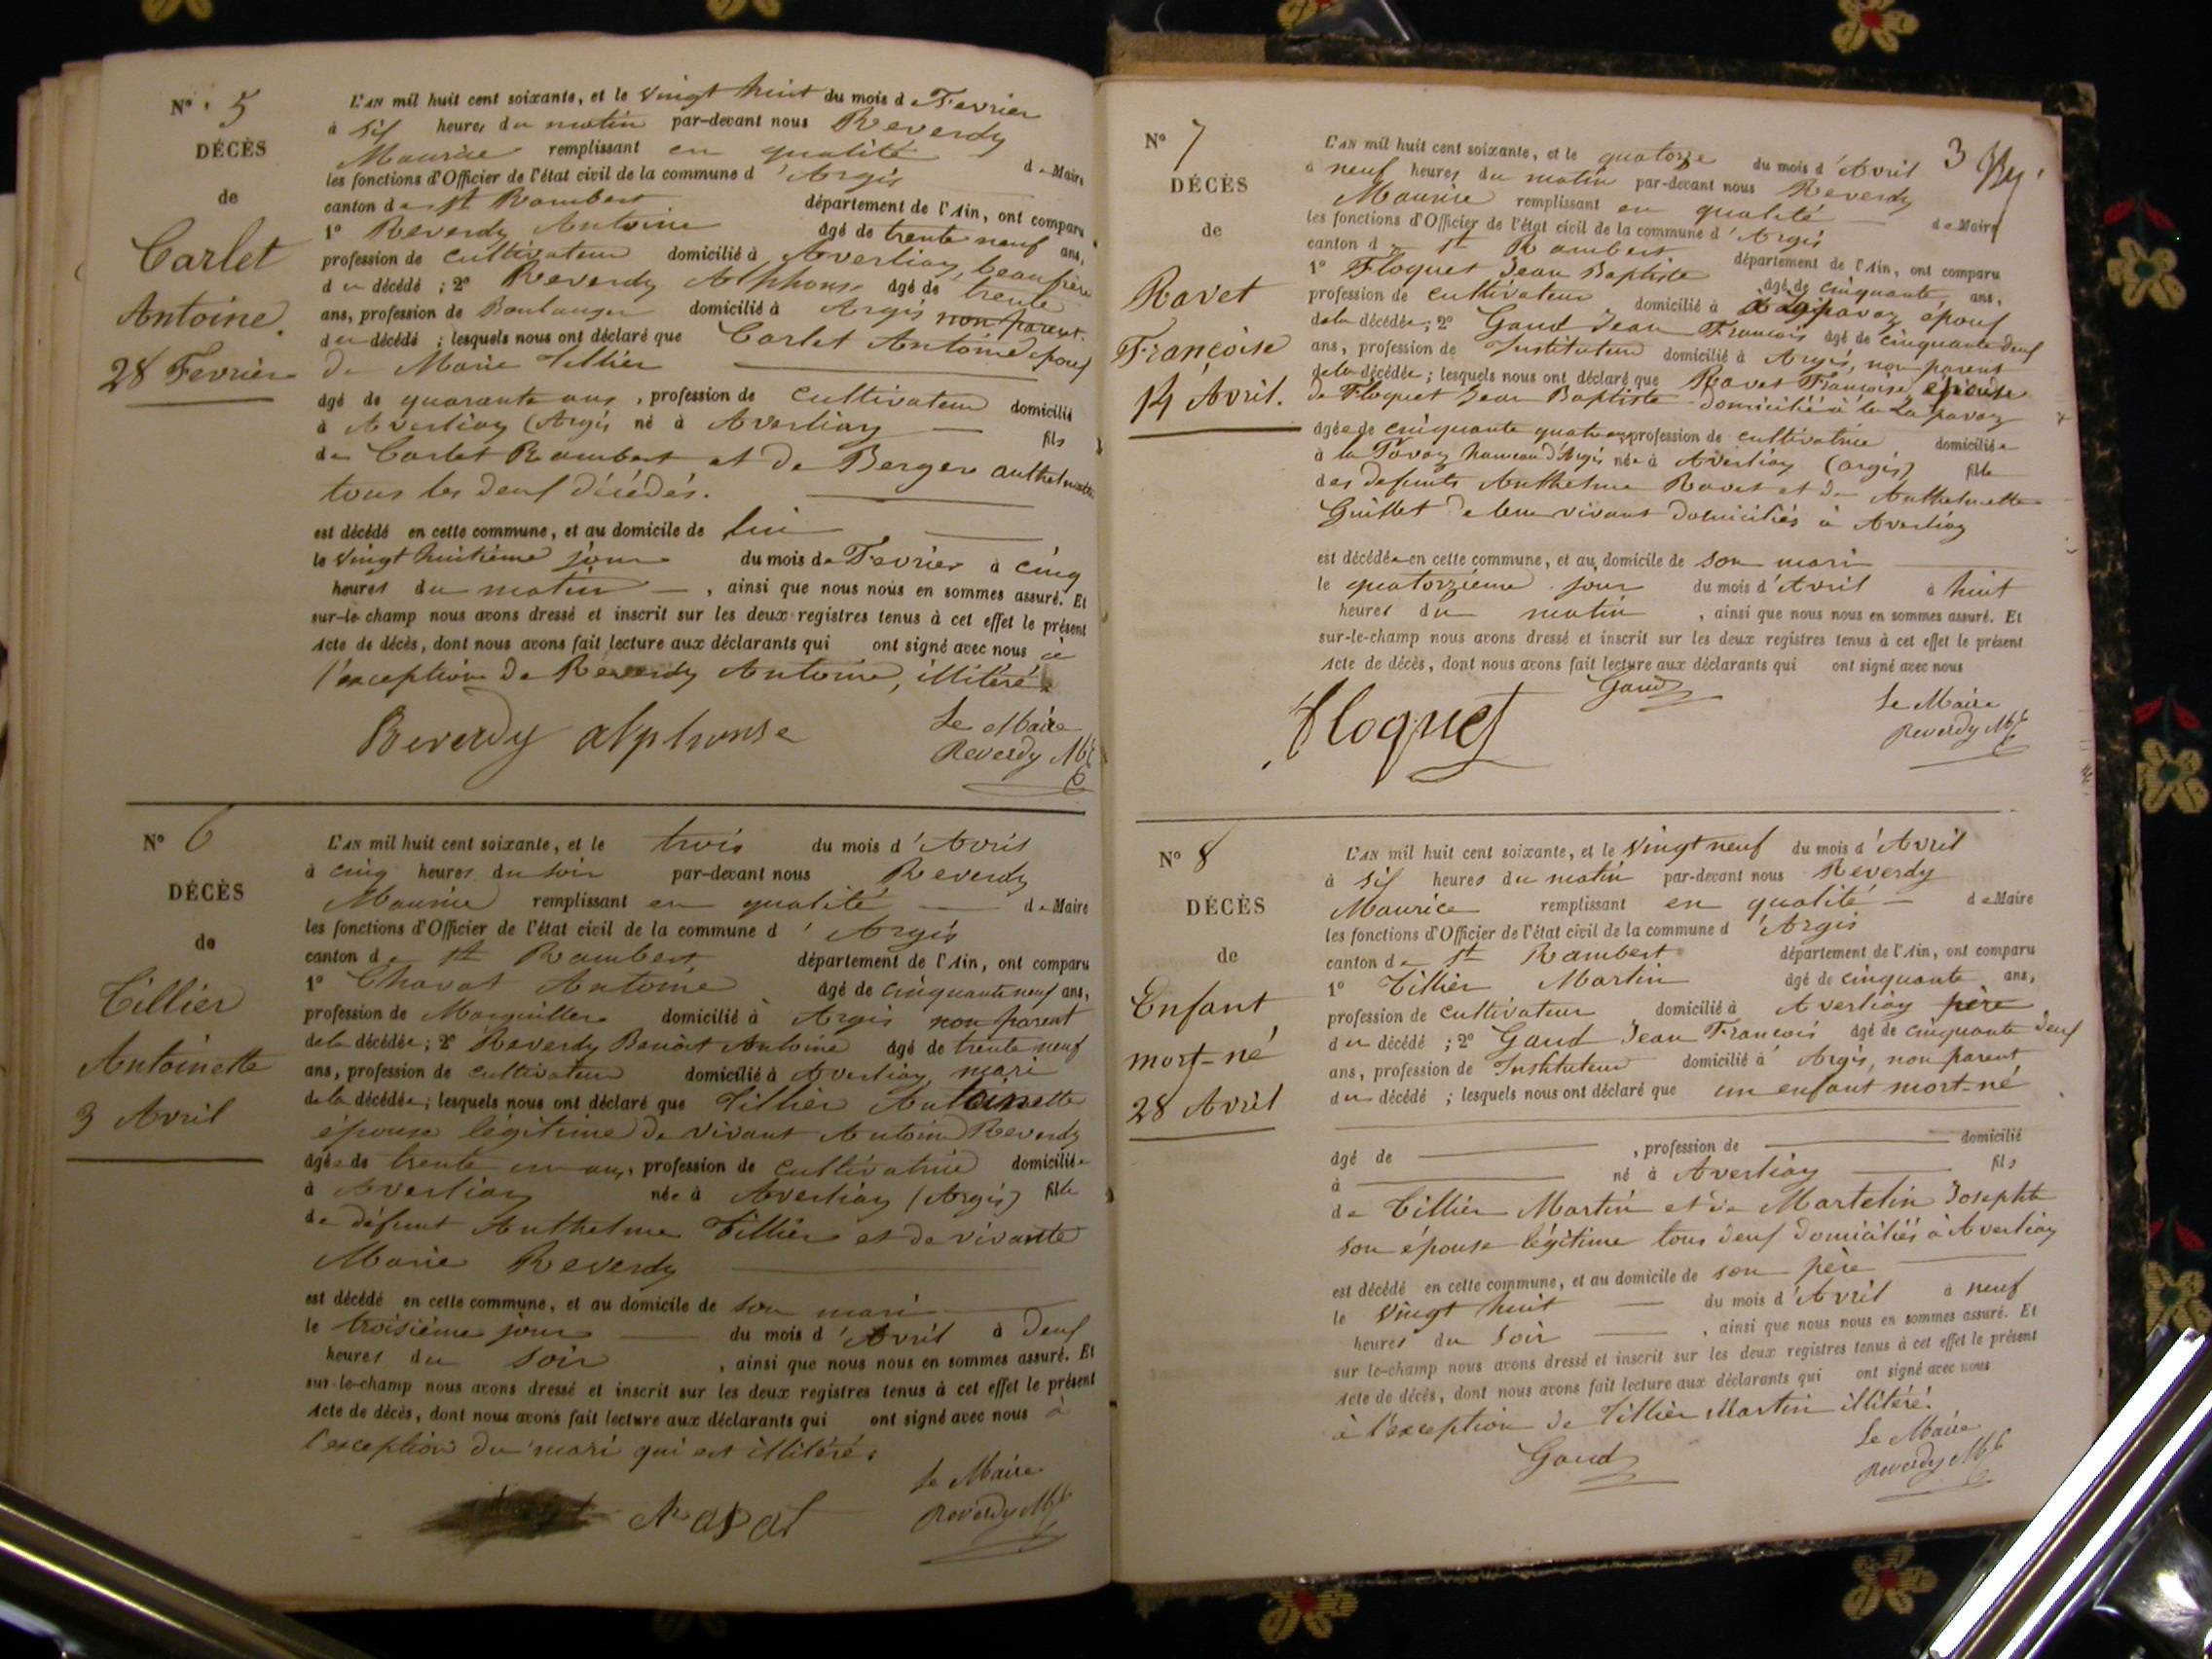 N° 5
DÉCÈS
de
Carlet
Antoine.
28 Fevrier
L'AN mil huit cent soixante, et le vingt huit du mois de Fevrier
à six heures du matin par-devant nous Reverdy
Maurice remplissant en qualité de Maire
les fonctions d'Officier de l'état civil de la commune d'Argis
canton de St Rambert département de l'Ain, ont comparu
1° Reverdy Antoine âgé de trente neuf ans,
profession de cultivateur domicilié à Averliaz, beaufrère
du décédé ; 2° Reverdy Alphonse âgé de trente
ans, profession de Boulanger domicilié à Argis non parent
du décédé ; lesquels nous ont déclaré que Carlet Antoine époux
de Marie Tillier
âgé de quarante ans, profession de cultivateur domicilié
à Averliaz (Argis né à Averliaz fils
de Carlet Rambert et de Berger anthelmette
tous les deux décédés.
est décédé en cette commune, et au domicile de lui
le vingt huitième jour du mois de Fevrier à cinq
heures du matin, ainsi que nous nous en sommes assuré. Et
sur-le-champ nous avons dressé et inscrit sur les deux registres tenus à cet effet le présent
Acte de décès, dont nous avons fait lecture aux déclarants qui ont signé avec nous à
l'exception de Reverdy Antoine, illitéré
Reverdy alphonse
Le Maire
Reverdy
N° 6
DÉCÈS
de
Tillier
Antoinette
3 Avril
L'AN mil huit cent soixante, et le trois du mois d'Avril
à cinq heures du soir par-devant nous Reverdy
Maurice remplissant en qualité de Maire
les fonctions d'Officier de l'état civil de la commune d'Argis
canton de St Rambert département de l'Ain, ont comparu
1° Chavat Antoine âgé de cinquante neuf ans,
profession de Marguiller domicilié à Argis non parent
de la décédée; 2° Reverdy Benoit Antoine âgé de trente neuf
ans, profession de cultivateur domicilié à Averliaz, mari
de la décédée; lesquels nous ont déclaré que Tillier Antoinette
épouse légitime de vivant Antoine Reverdy
âgée de trente un ans, profession de cultivatrice domiciliée
à Averliaz née à Averliaz (Argis) fille
de défunt Anthelme Tillier et de vivante
Marie Reverdy
est décédé en cette commune, et au domicile de son mari
le troisième jour du mois d'Avril à deux
heures du soir, ainsi que nous nous en sommes assuré. Et
sur-le-champ nous avons dressé et inscrit sur les deux registres tenus à cet effet le présent
Acte de décès, dont nous avons fait lecture aux déclarants qui ont signé avec nous à
l'exception du mari qui est illitéré.
Le Maire
Reverdy
3
N° 7
DÉCÈS
de
Ravet
Françoise
14 Avril.
L'AN mil huit cent soixante, et le quatorze du mois d'Avril
à neuf heures du matin par-devant nous Reverdy
Maurice remplissant en qualité de Maire
les fonctions d'Officier de l'état civil de la commune d'Argis
canton de St Rambert département de l'Ain, ont comparu
1° Floquet Jean Baptiste âgé de cinquante ans,
profession de cultivateur domicilié à époux
de la décédée; 2° Gaud Jean François âgé de cinquante deux
ans, profession de Instituteur domicilié à Argis, non parent
de la décédée; lesquels nous ont déclaré que Ravet Françoise, épouse
de Floquet Jean Baptiste domiciliée à la Lapavaz
âgée de cinquante quatre ans profession de cultivatrice domiciliée
à la Pavaz hameau d'Argis née à Averliaz (argis) fille
des defunts Anthelme Ravet et de Anthelmette
Guillet de leur vivant domiciliés à Averliaz
est décédée en cette commune, et au domicile de son mari
le quatorzième jour du mois d'Avril à huit
heures du matin, ainsi que nous nous en sommes assuré. Et
sur-le-champ nous avons dressé et inscrit sur les deux registres tenus à cet effet le présent
Acte de décès, dont nous avons fait lecture aux déclarants qui ont signé avec nous
Floquet
Gaud
Le Maire
Reverdy
N° 8
DÉCÈS
de
Enfant
mort-né
28 Avril
L'AN mil huit cent soixante, et le vingt neuf du mois d'Avril
à six heures du matin par-devant nous Reverdy
Maurice remplissant en qualité de Maire
les fonctions d'Officier de l'état civil de la commune d'Argis
canton de St Rambert département de l'Ain, ont comparu
1° Tillier Martin âgé de cinquante ans,
profession de cultivateur domicilié à Averliaz père
du décédé ; 2° Gaud Jean François âgé de cinquante deux
ans, profession de Instituteur domicilié à Argis, non parent
du décédé ; lesquels nous ont déclaré que un enfant mort-né
âgé de , profession de domicilié
à né à Averliaz fils
de Tillier Martin et de Martelin Josephte
son épouse légitime tous deux domiciliés à Averliaz
est décédé en cette commune, et au domicile de son père
le vingt huit du mois d'Avril à neuf
heures du soir, ainsi que nous nous en sommes assuré. Et
sur le-champ nous avons dressé et inscrit sur les deux registres tenus à cet effet le présent
Acte de décès, dont nous avons fait lecture aux déclarants qui ont signé avec nous
à l'exception de Tillier Martin illitéré.
Gaud
Le Maire
Reverdy